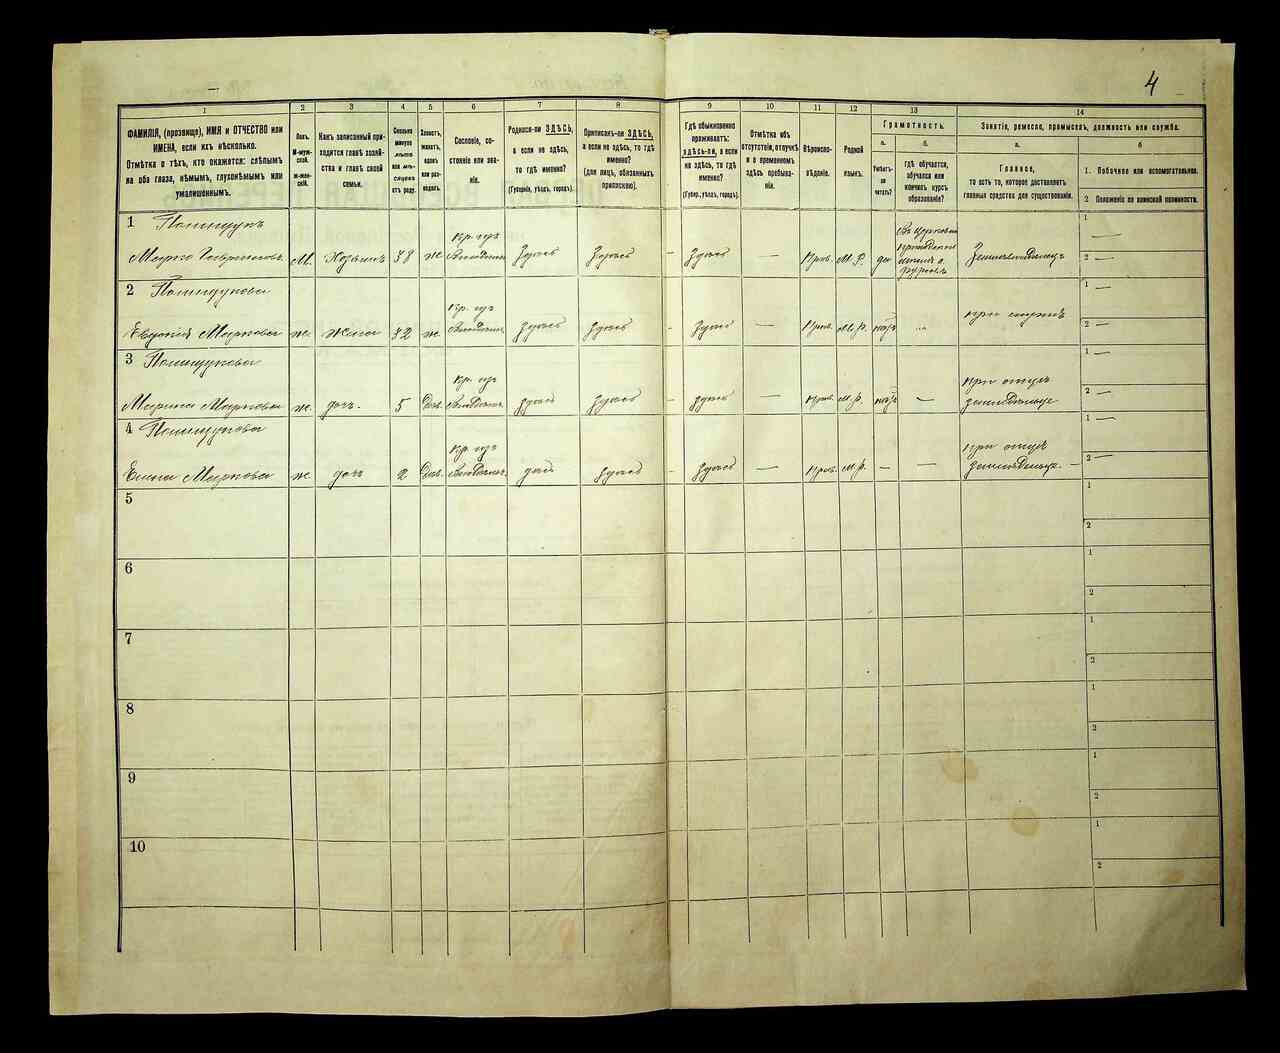 4
1
2
3
4
5
6
7
8
9
10
11
12
13
14
ФАМИЛІЯ, (прозвище), ИМЯ и ОТЧЕСТВО или
ИМЕНА, если ихъ нѣсколько.
Отмѣтка о тѣхъ, кто окажется: слѣпымъ
на оба глаза, нѣмымъ, глухонѣмымъ или
умалишеннымъ.
Полъ.
М-муж-
ской.
ж-жен-
скій.
Какъ записанный при-
ходится главѣ хозяй-
ства и главѣ своей
семьи.
Сколько
минуло
лѣтъ
или мѣ-
сяцевъ
отъ роду.
Холостъ,
женатъ,
вдовъ
или раз-
веденъ.
Сословіе, со-
стояніе или зва-
ніе.
Родился-ли ЗДѢСЬ,
а если не здѣсь,
то гдѣ именно?
(Губернія, уѣздъ, городъ).
Приписанъ-ли ЗДѢСЬ,
а если не здѣсь, то гдѣ
именно?
(для лицъ, обязанныхъ
припискою).
Гдѣ обыкновенно
проживаетъ:
здѣсь-ли, а если
не здѣсь, то гдѣ
именно?
(Губер., уѣздъ, городъ).
Отмѣтка объ
отсутствіи, отлучкѣ
и о временномъ
здѣсь пребыва-
ніи.
Вѣроиспо-
вѣданіе.
Родной
языкъ.
Грамотность.
а.
Умѣетъ-
ли
читать?
б.
Гдѣ обучается,
обучался или
кончилъ курсъ
образованія?
Занятіе, ремесло, промыселъ, должность или служба.
а.
Главное,
то есть то, которое доставляетъ
главныя средства для существованія.
б
1. Побочное или вспомогательное.
2 Положеніе по воинской повинности.
1 Полищукъ
Марко Гавриловъ М. Хозяинъ 38 ж Кр. изъ Здѣсь Здѣсь – Здѣсь — Прав. М.Р. да Земледѣлецъ
1 —
2 —
2 Полищукова
Евдокія Маркова ж. жена 32 ж. Кр. изъ Здѣсь Здѣсь – Здѣсь — Прав. М.Р. нѣтъ при мужѣ
1 —
2 —
3 Полищукова
Марина Маркова ж. дочь. 5 Дѣв. Кр. изъ здѣсь здѣсь – здѣсь — Прав. М.Р. нѣтъ — при отцѣ
земледѣльцѣ
1 —
2 —
4 Полищукова
Елена Маркова ж. дочь 2 Дѣв. Кр. изъ здѣсь здѣсь – здѣсь — Прав. М.Р. – — при отцѣ
земледѣльцѣ. –
1 —
2 —
5
1
2
6
1
2
7
1
2
8
1
2
9
1
2
10
1
2